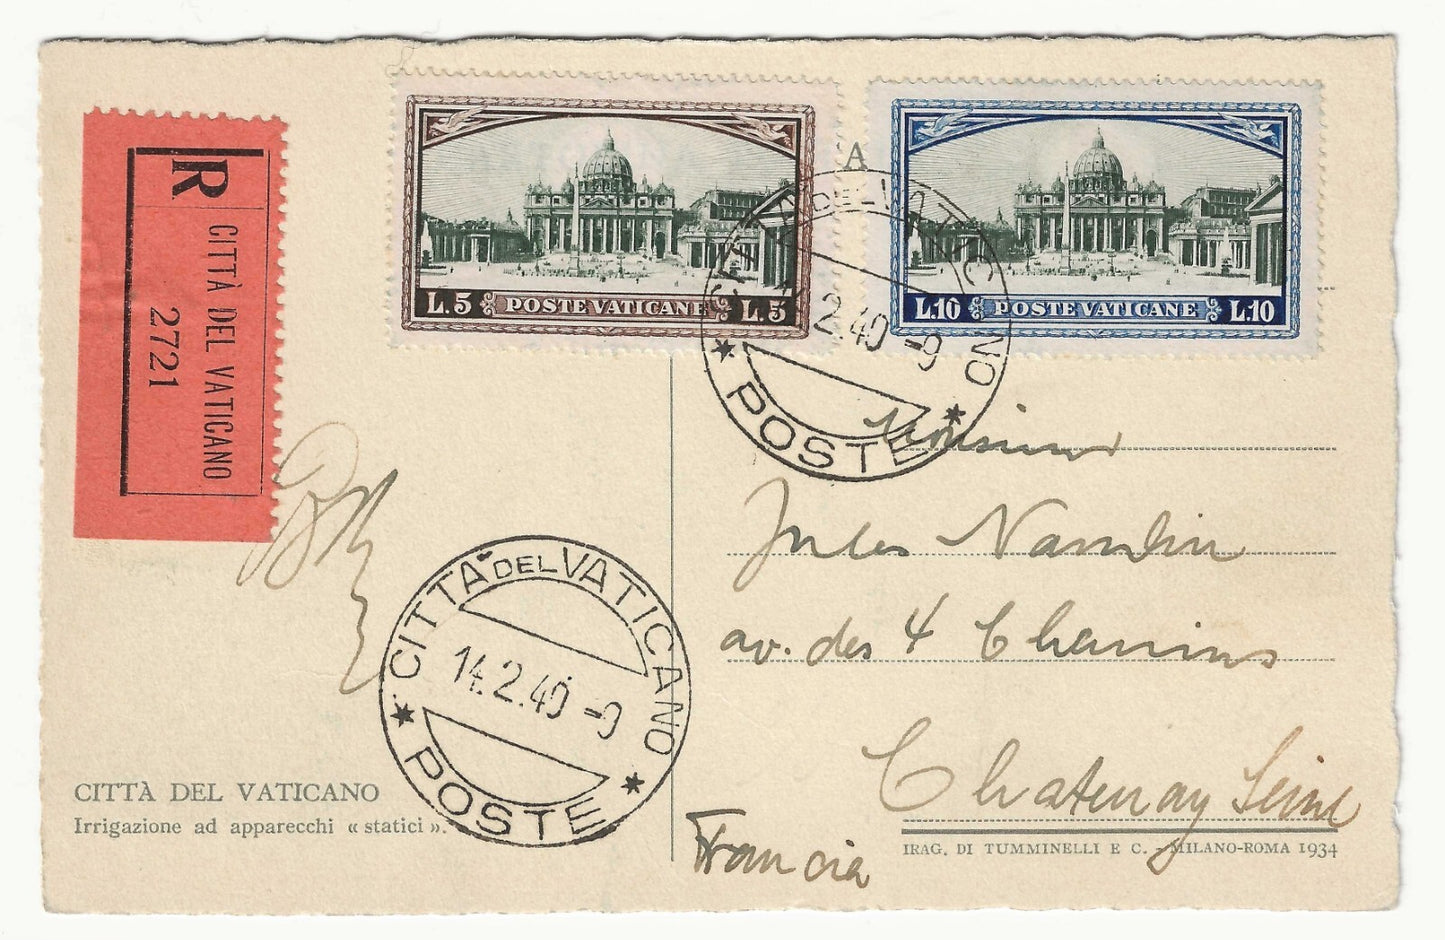 R
CITTÀ DEL VATICANO
2721
A
L.5 POSTE VATICANE L.5
L.10 POSTE VATICANE L.10
CITTÀ DEL VATICANO
2.40-9
POSTE
Monsieur
Jules
av. des 4 Chemins
Chatenay Seine
Francia
CITTÀ DEL VATICANO
14.2.40-9
POSTE
CITTÀ DEL VATICANO
Irrigazione ad apparecchi « statici ».
IRAG. DI TUMMINELLI E C. - MILANO-ROMA 1934